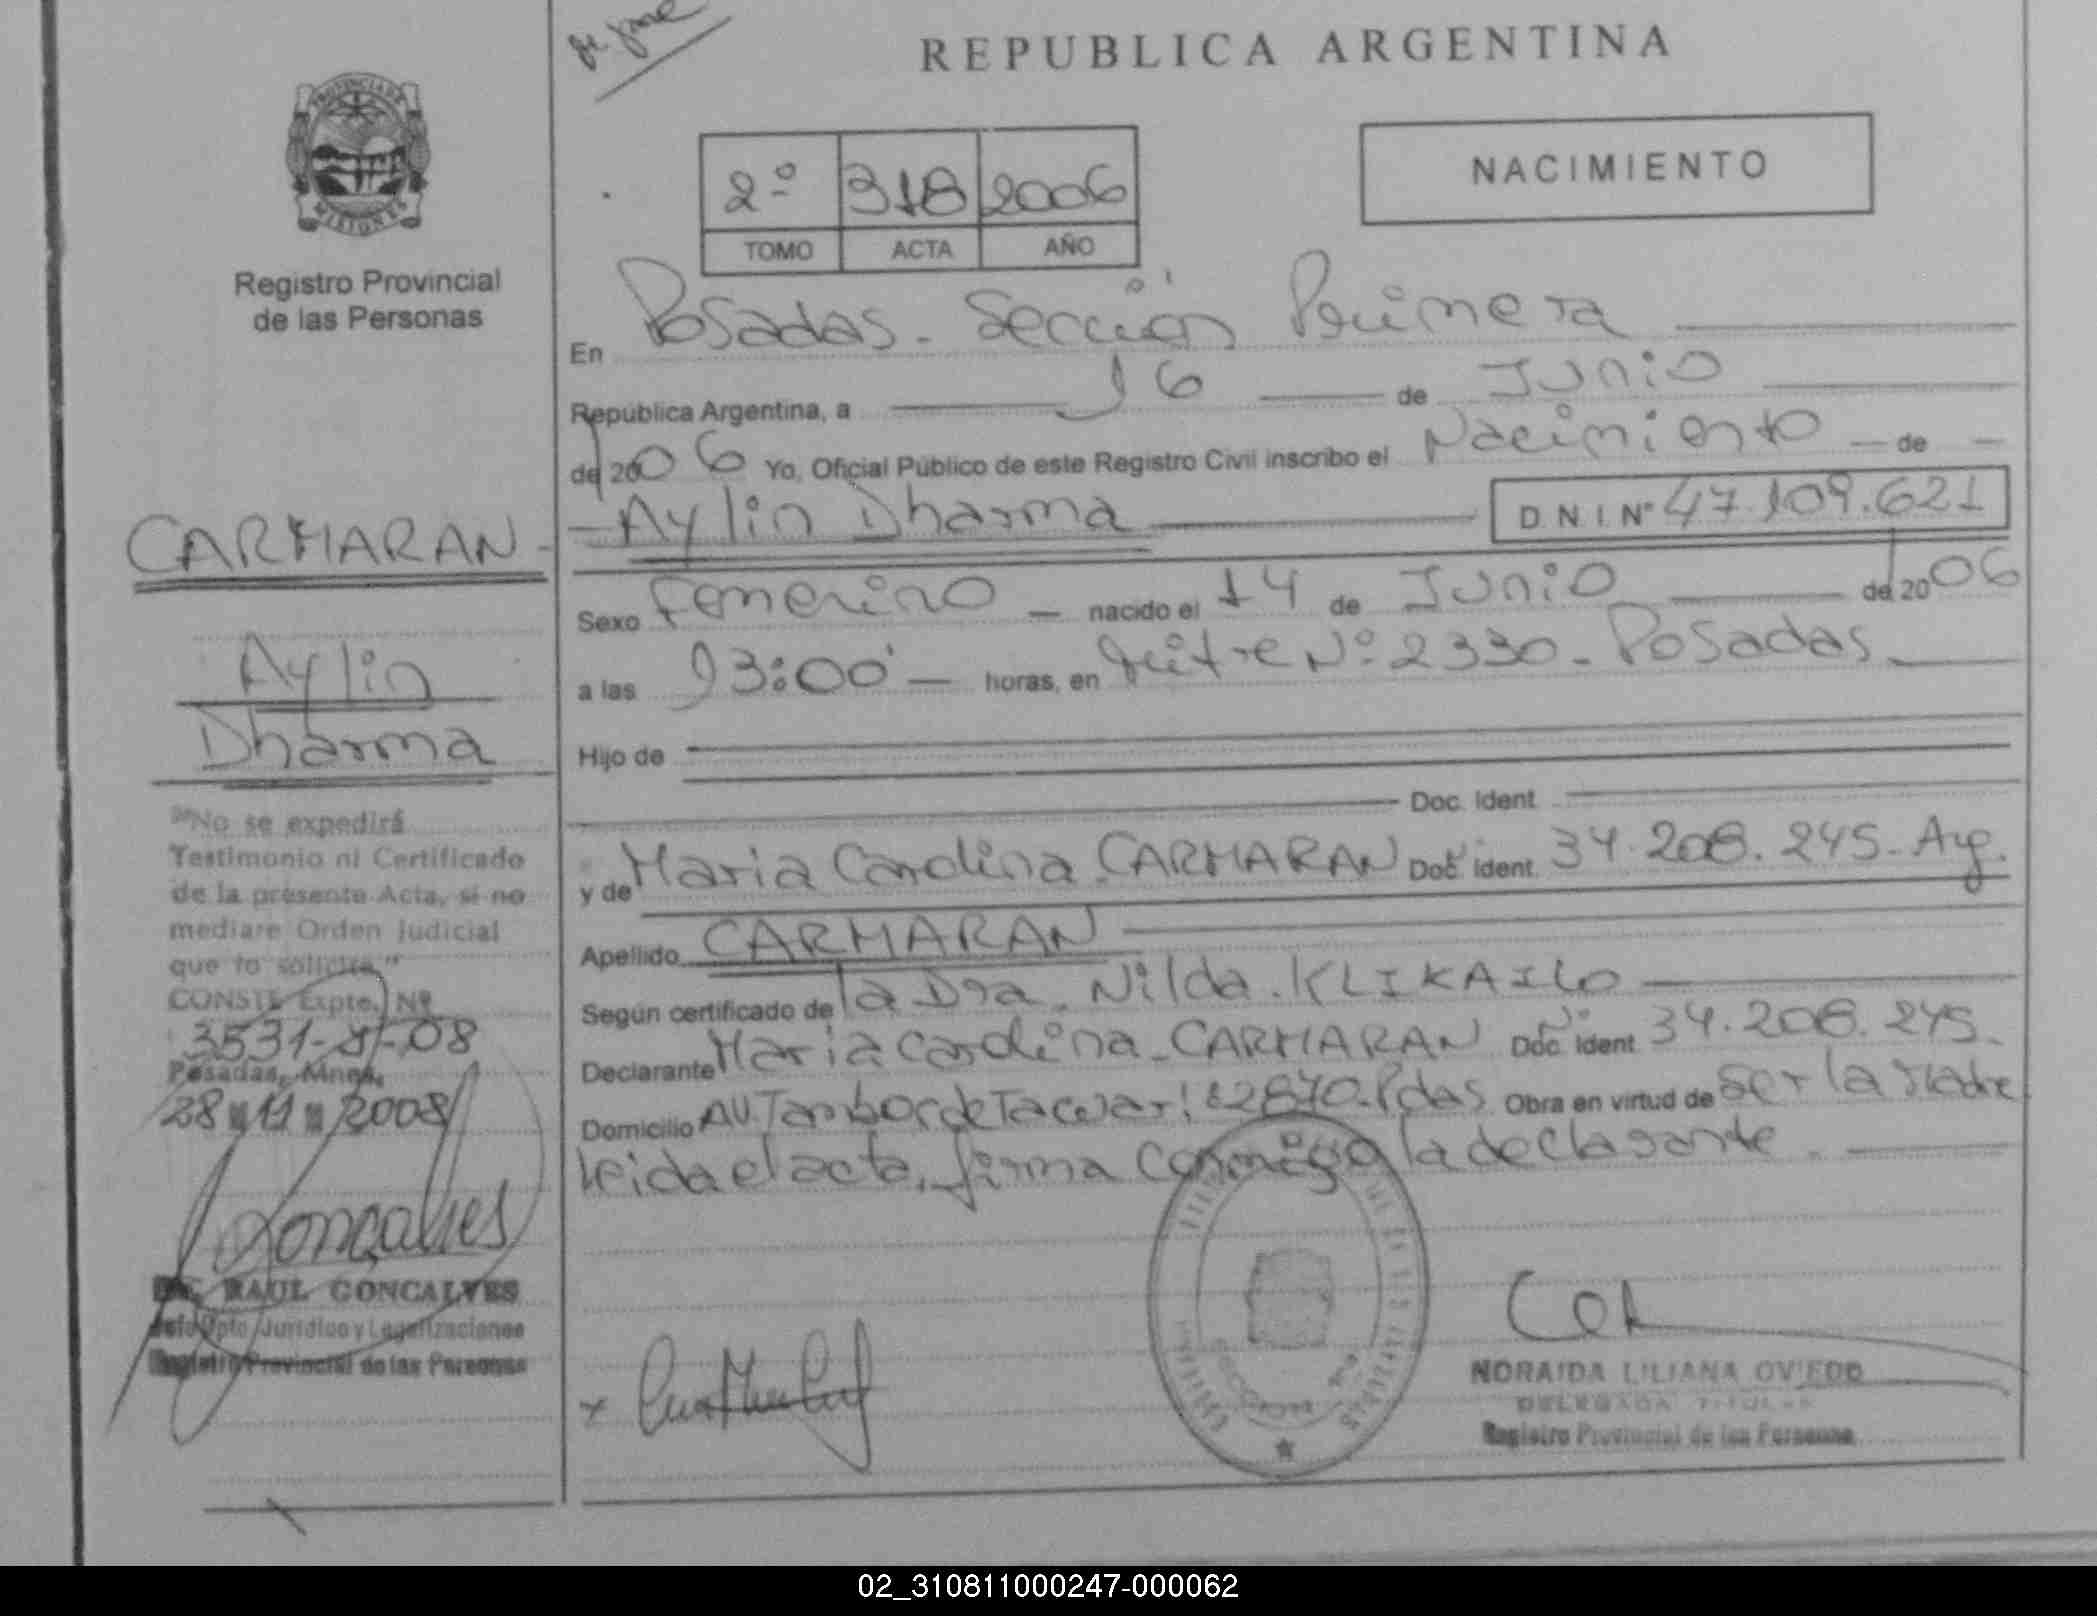 REPUBLICA ARGENTINA
PROVINCIA DE
MISIONES
Registro Provincial
de las Personas
2º 318 2006
TOMO ACTA AÑO
NACIMIENTO
En Posadas. Sección Primera
República Argentina, a 16 de Junio
de 2006 Yo, Oficial Público de este Registro Civil inscribo el Nacimiento de
Aylin Dharma D N I. Nº 47.109.621
Sexo Femenino nacido el 14 de Junio de 2006
a las 13:00 horas, en Mitre Nº 2330. Posadas
Hijo de
Doc. Ident.
y de Maria Carolina CARMARAN Doc. Ident. 34.208.245- Arg.
Apellido CARMARAN
Según certificado de la Dra. Nilda. KLIKAILO
Declarante Maria Carolina CARMARAN Doc. Ident. 34.208.245.
Domicilio AV. Tambor de Tacuarí 2870. Pdas Obra en virtud de Ser la Madre
leida el acta, firma Conmigo la declarante.
NORAIDA LILIANA OVIEDO
DELEGADA TITULAR
Registro Provincial de las Personas
CARMARAN
Aylin
Dharma
"No se expedirá
Testimonio ni Certificado
de la presente Acta, si no
mediare Orden Judicial
que lo solicite."
CONSTE Expte. Nº
Posadas, Mnes.
28 11 2008
Goncalves
RAUL GONCALVES
Jefe Dpto. Jurídico y Legalizaciones
Registro Provincial de las Personas
02_310811000247-000062